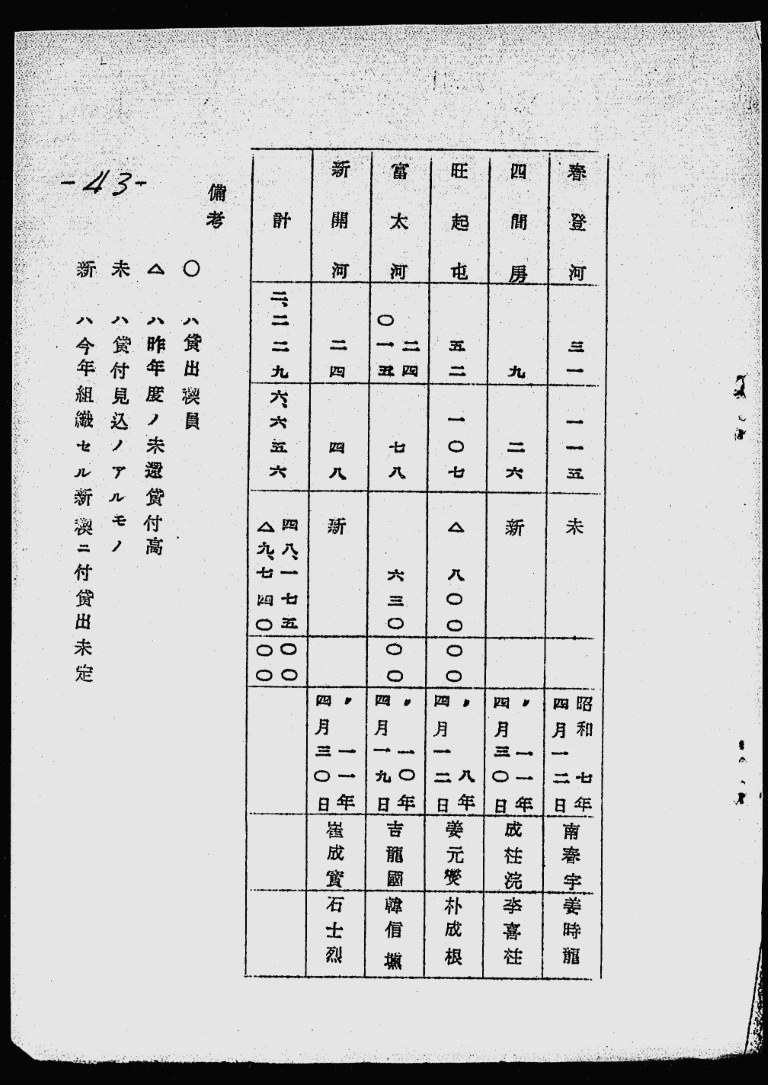 春登河 三一 一一五 未 昭和七年四月一二日 南春宇 姜時龍
四間房 九 二六 新 〃一一年四月三〇日 成柱浣 李喜柱
旺起屯 五二 一〇七 △八〇〇〇〇 〃八年四月一二日 姜元燮 朴成根
富太河 二四 〇一五 七八 六三〇〇〇 〃一〇年四月一九日 吉龍國 韓信
新開河 二四 四八 新 〃一一年四月三〇日 崔成賓 石士烈
計 二、二二九 六、六五六 四八、一七五〇〇 △九、七四〇〇〇
備考
〇 ハ貸出員
△ ハ昨年度ノ未還貸付高
未 ハ貸付見込ノアルモノ
新 ハ今年組織セル新ニ付貸出未定
-43-